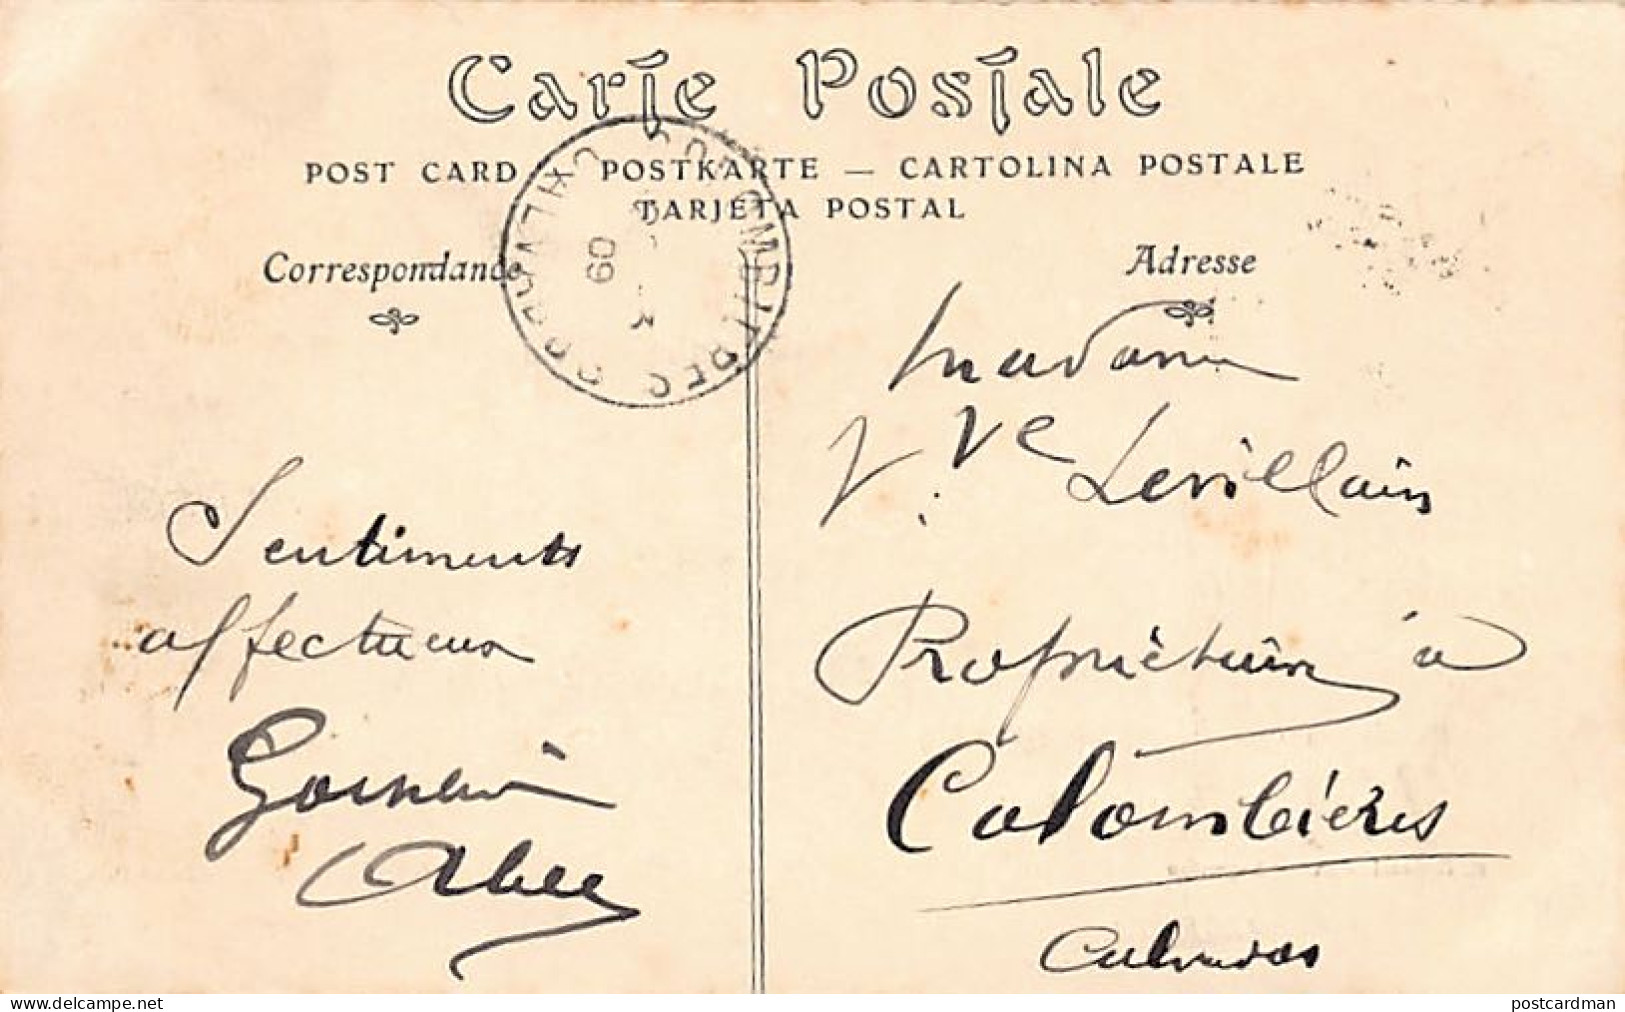 Carte Postale
POST CARD — POSTKARTE — CARTOLINA POSTALE
TARJETA POSTAL
Correspondance
Adresse
09
3
Madame
V. Ve Levillain
Propriétaire à
Colombières
Calvados
Sentiments
affectueux
postcardman
www.delcampe.net